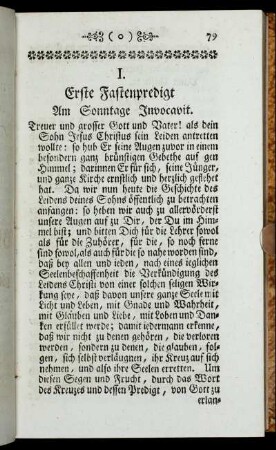 ( o ) 79
I.
Erste Fastenpredigt
Am Sonntage Invocavit.
Treuer und grosser Gott und Vater! als dein
Sohn Jesus Christus sein Leiden antretten
wollte: so hub Er seine Augen zuvor in einem
besondern ganz brünstigen Gebethe auf gen
Himmel; darinnen Er für sich, seine Jünger,
und ganze Kirche ernstlich und herzlich geflehet
hat. Da wir nun heute die Geschichte des
Leidens deines Sohns öffentlich zu betrachten
anfangen: so heben wir auch zu allervörderst
unsere Augen auf zu Dir, der Du im Him-
mel bist; und bitten Dich für die Lehrer sowol
als für die Zuhörer, für die, so noch ferne
sind sowol, als auch für die so nahe worden sind,
daß bey allen und ieden, nach eines ieglichen
Seelenbeschaffenheit die Verkündigung des
Leidens Christi von einer solchen seligen Wir-
kung seye, daß davon unsere ganze Seele mit
Licht und Leben, mit Gnade und Wahrheit,
mit Glauben und Liebe, mit Loben und Dan-
ken erfüllet werde; damit iedermann erkenne,
daß wir nicht zu denen gehören, die verloren
werden, sondern zu denen, die glauben, fol-
gen, sich selbst verläugnen, ihr Kreuz auf sich
nehmen, und also ihre Seelen erretten. Um
diesen Segen und Frucht, durch das Wort
des Kreuzes und dessen Predigt, von Gott zu
erlan-